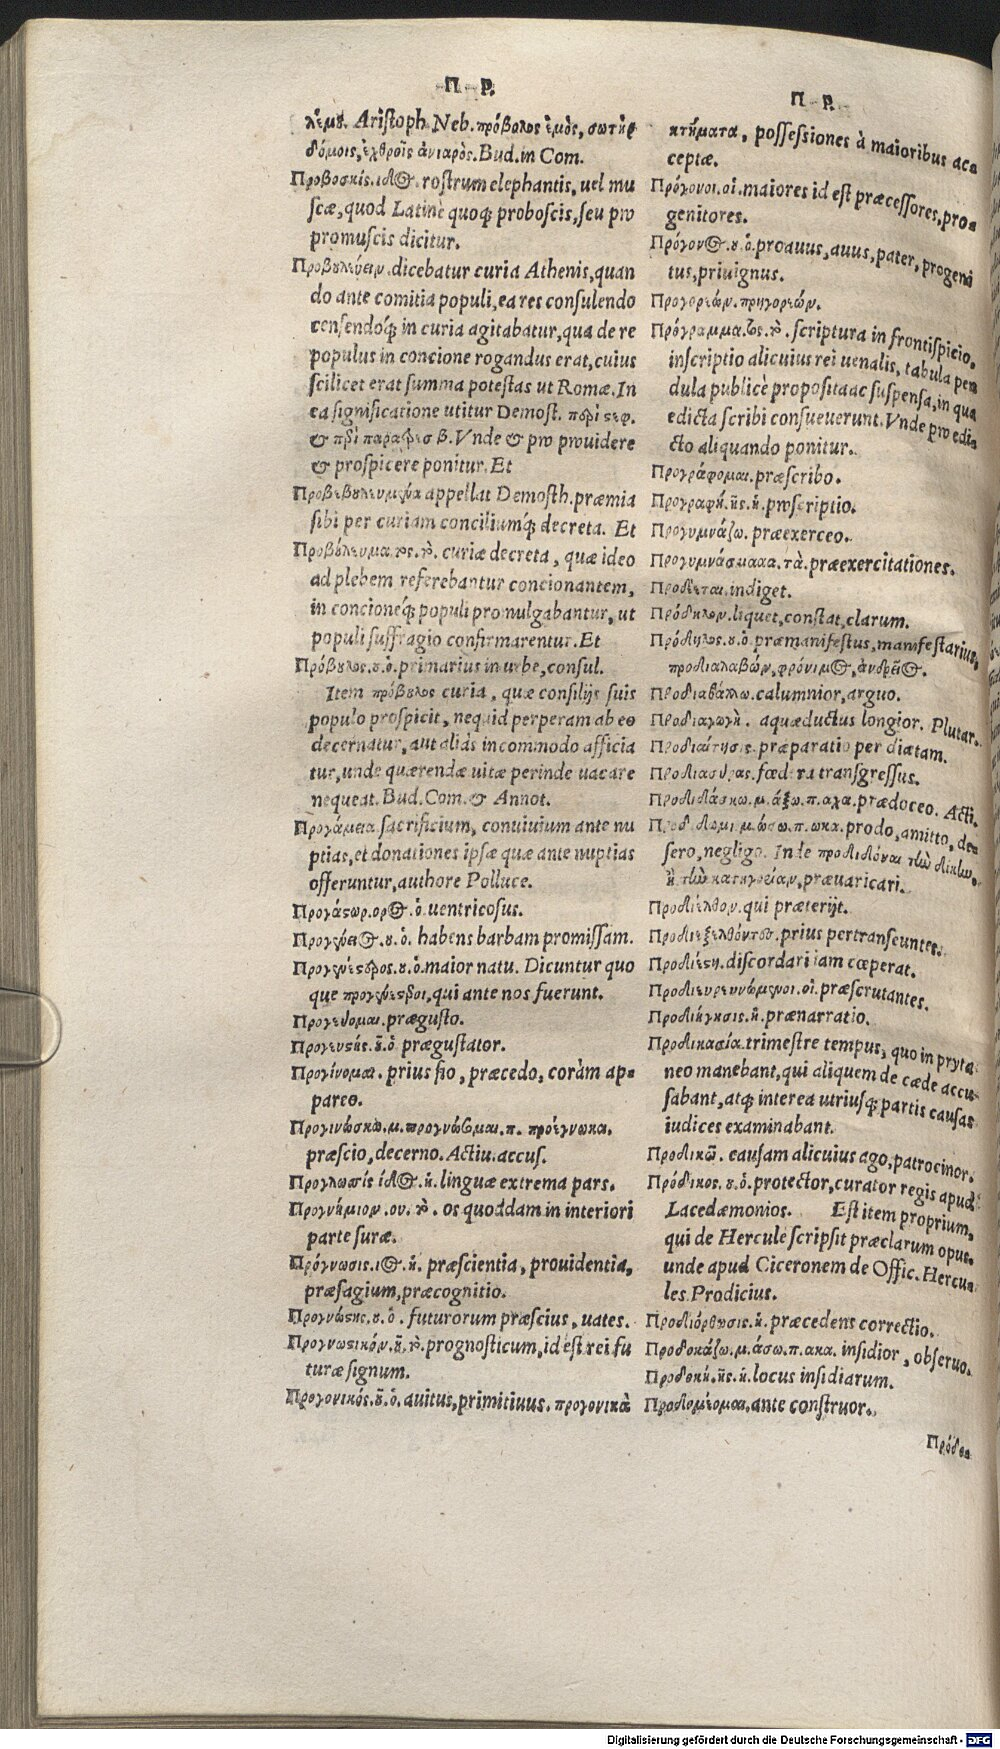 Π Ρ.
λέμου. Aristoph. Neb. πρόβολος ἐμὸς, σωτὴρ
δόμοις, ἐχθροῖς ἀνιαρός. Bud. in Com.
Προβοσκίς. ιδος. rostrum elephantis, uel mu
scæ, quod Latinè quoq; proboscis, seu pro
promuscis dicitur.
Προβουλεύειν. dicebatur curia Athenis, quan
do ante comitia populi, ea res consulendo
censendoq́; in curia agitabatur, qua de re
populus in concione rogandus erat, cuius
scilicet erat summa potestas ut Romæ. In
ea significatione utitur Demost. περὶ στεφ.
& περὶ παραπρεσ β. Vnde & pro prouidere
& prospicere ponitur. Et
Προβεβουλευμένα appellat Demosth. præmia
sibi per curiam conciliumq́; decreta. Et
Προβούλευμα. τος. τὸ. curiæ decreta, quæ ideo
ad plebem referebantur concionantem,
in concioneq́; populi promulgabantur, ut
populi suffragio confirmarentur. Et
Πρόβουλος. ου. ὁ. primarius in urbe, consul.
Item πρόβουλος curia, quæ consilijs suis
populo prospicit, nequid perperam ab eo
decernatur, aut aliàs incommodo afficia
tur, unde quærendæ uitæ perinde uacare
nequeat. Bud. Com. & Annot.
Προγάμεια sacrificium, conuiuium ante nu
ptias, et donationes ipsæ quæ ante nuptias
offeruntur, authore Polluce.
Προγάστωρ. ορος. ὁ. uentricosus.
Προγένειος. ου. ὁ. habens barbam promissam.
Προγενέστερος. ου. ὁ. maior natu. Dicuntur quo
que προγενέστεροι, qui ante nos fuerunt.
Προγεύομαι. prægusto.
Προγευστής. οῦ. ὁ prægustator.
Προγίνομαι. prius fio, præcedo, coràm ap-
pareo.
Προγινώσκω. μ. προγνώσομαι. π. προέγνωκα.
præscio, decerno. Actiu. accus.
Προγλωσσίς ίδος. ἡ. linguæ extrema pars.
Προγνήμιον. ου. τὸ. os quoddam in interiori
parte suræ.
Πρόγνωσις. ιος. ἡ. præscientia, prouidentia,
præsagium, præcognitio.
Προγνώστης. ου. ὁ. futurorum præscius, uates.
Προγνωστικόν. οῦ. τὸ. prognosticum, id est rei fu
turæ signum.
Προγονικός. οῦ. ὁ. auitus, primitiuus. προγονικὰ
Π Ρ.
κτήματα, possessiones à maioribus ac-
ceptæ.
Πρόγονοι. οἱ. maiores id est præcessores, pro-
genitores.
Πρόγονος. ου. ὁ. proauus, auus, pater, progeni
tus, priuignus.
Προγορεών. πρηγορεών.
Πρόγραμμα. τος. τὸ. scriptura in frontispicio,
inscriptio alicuius rei uenalis, tabula pen
dula publicè proposita ac suspensa, in qua
edicta scribi consueuerunt. Vnde pro edi-
cto aliquando ponitur.
Προγράφομαι. præscribo.
Προγραφή. ῆς. ἡ. proscriptio.
Προγυμνάζω. præexerceo.
Προγυμνάσματα. τὰ. præexercitationes.
Προδεῖται. indiget.
Πρόδηλον. liquet, constat, clarum.
Πρόδηλος. ου. ὁ. præmanifestus, manifestarius,
προδιαλαβών, φρόνιμος, ἀνδρεῖος.
Προδιαβάλλω. calumnior, arguo.
Προδιαγωγὴ. aquæductus longior. Plutar.
Προδιαίτησις. præparatio per diætam.
Προδιασύρας. fœdera transgressus.
Προδιδάσκω. μ. άξω. π. αχα. prædoceo. Acti.
Προδίδωμι. μ. ώσω. π. ωκα. prodo, amitto, de-
sero, negligo. Inde προδιδόναι τὴν δίκην,
ἢ τὴν κατηγορίαν, præuaricari.
Προδιέλθον. qui præterijt.
Προδιεξελθόντες. prius pertranseuntes.
Προδιέστη. discordari iam cœperat.
Προδιευρευνώμενοι. οἱ. præscrutantes.
Προδιήγησις. ἡ. prænarratio.
Προδικασία. trimestre tempus, quo in pryta-
neo manebant, qui aliquem de cæde accu-
sabant, atq; interea utriusq; partis causas
iudices examinabant.
Προδικῶ. causam alicuius ago, patrocinor.
Πρόδικος. ου. ὁ. protector, curator regis apud
Lacedæmonios. Est item proprium,
qui de Hercule scripsit præclarum opus.
unde apud Ciceronem de Offic. Hercu-
les Prodicius.
Προδιόρθησις. ἡ. præcedens correctio.
Προδοκάζω. μ. άσω. π. ακα. insidior, obseruo.
Προδοκή. ῆς. ἡ. locus insidiarum.
Προδομέομαι. ante construor.
Πρόδο-
Digitalisierung gefördert durch die Deutsche Forschungsgemeinschaft - DFG